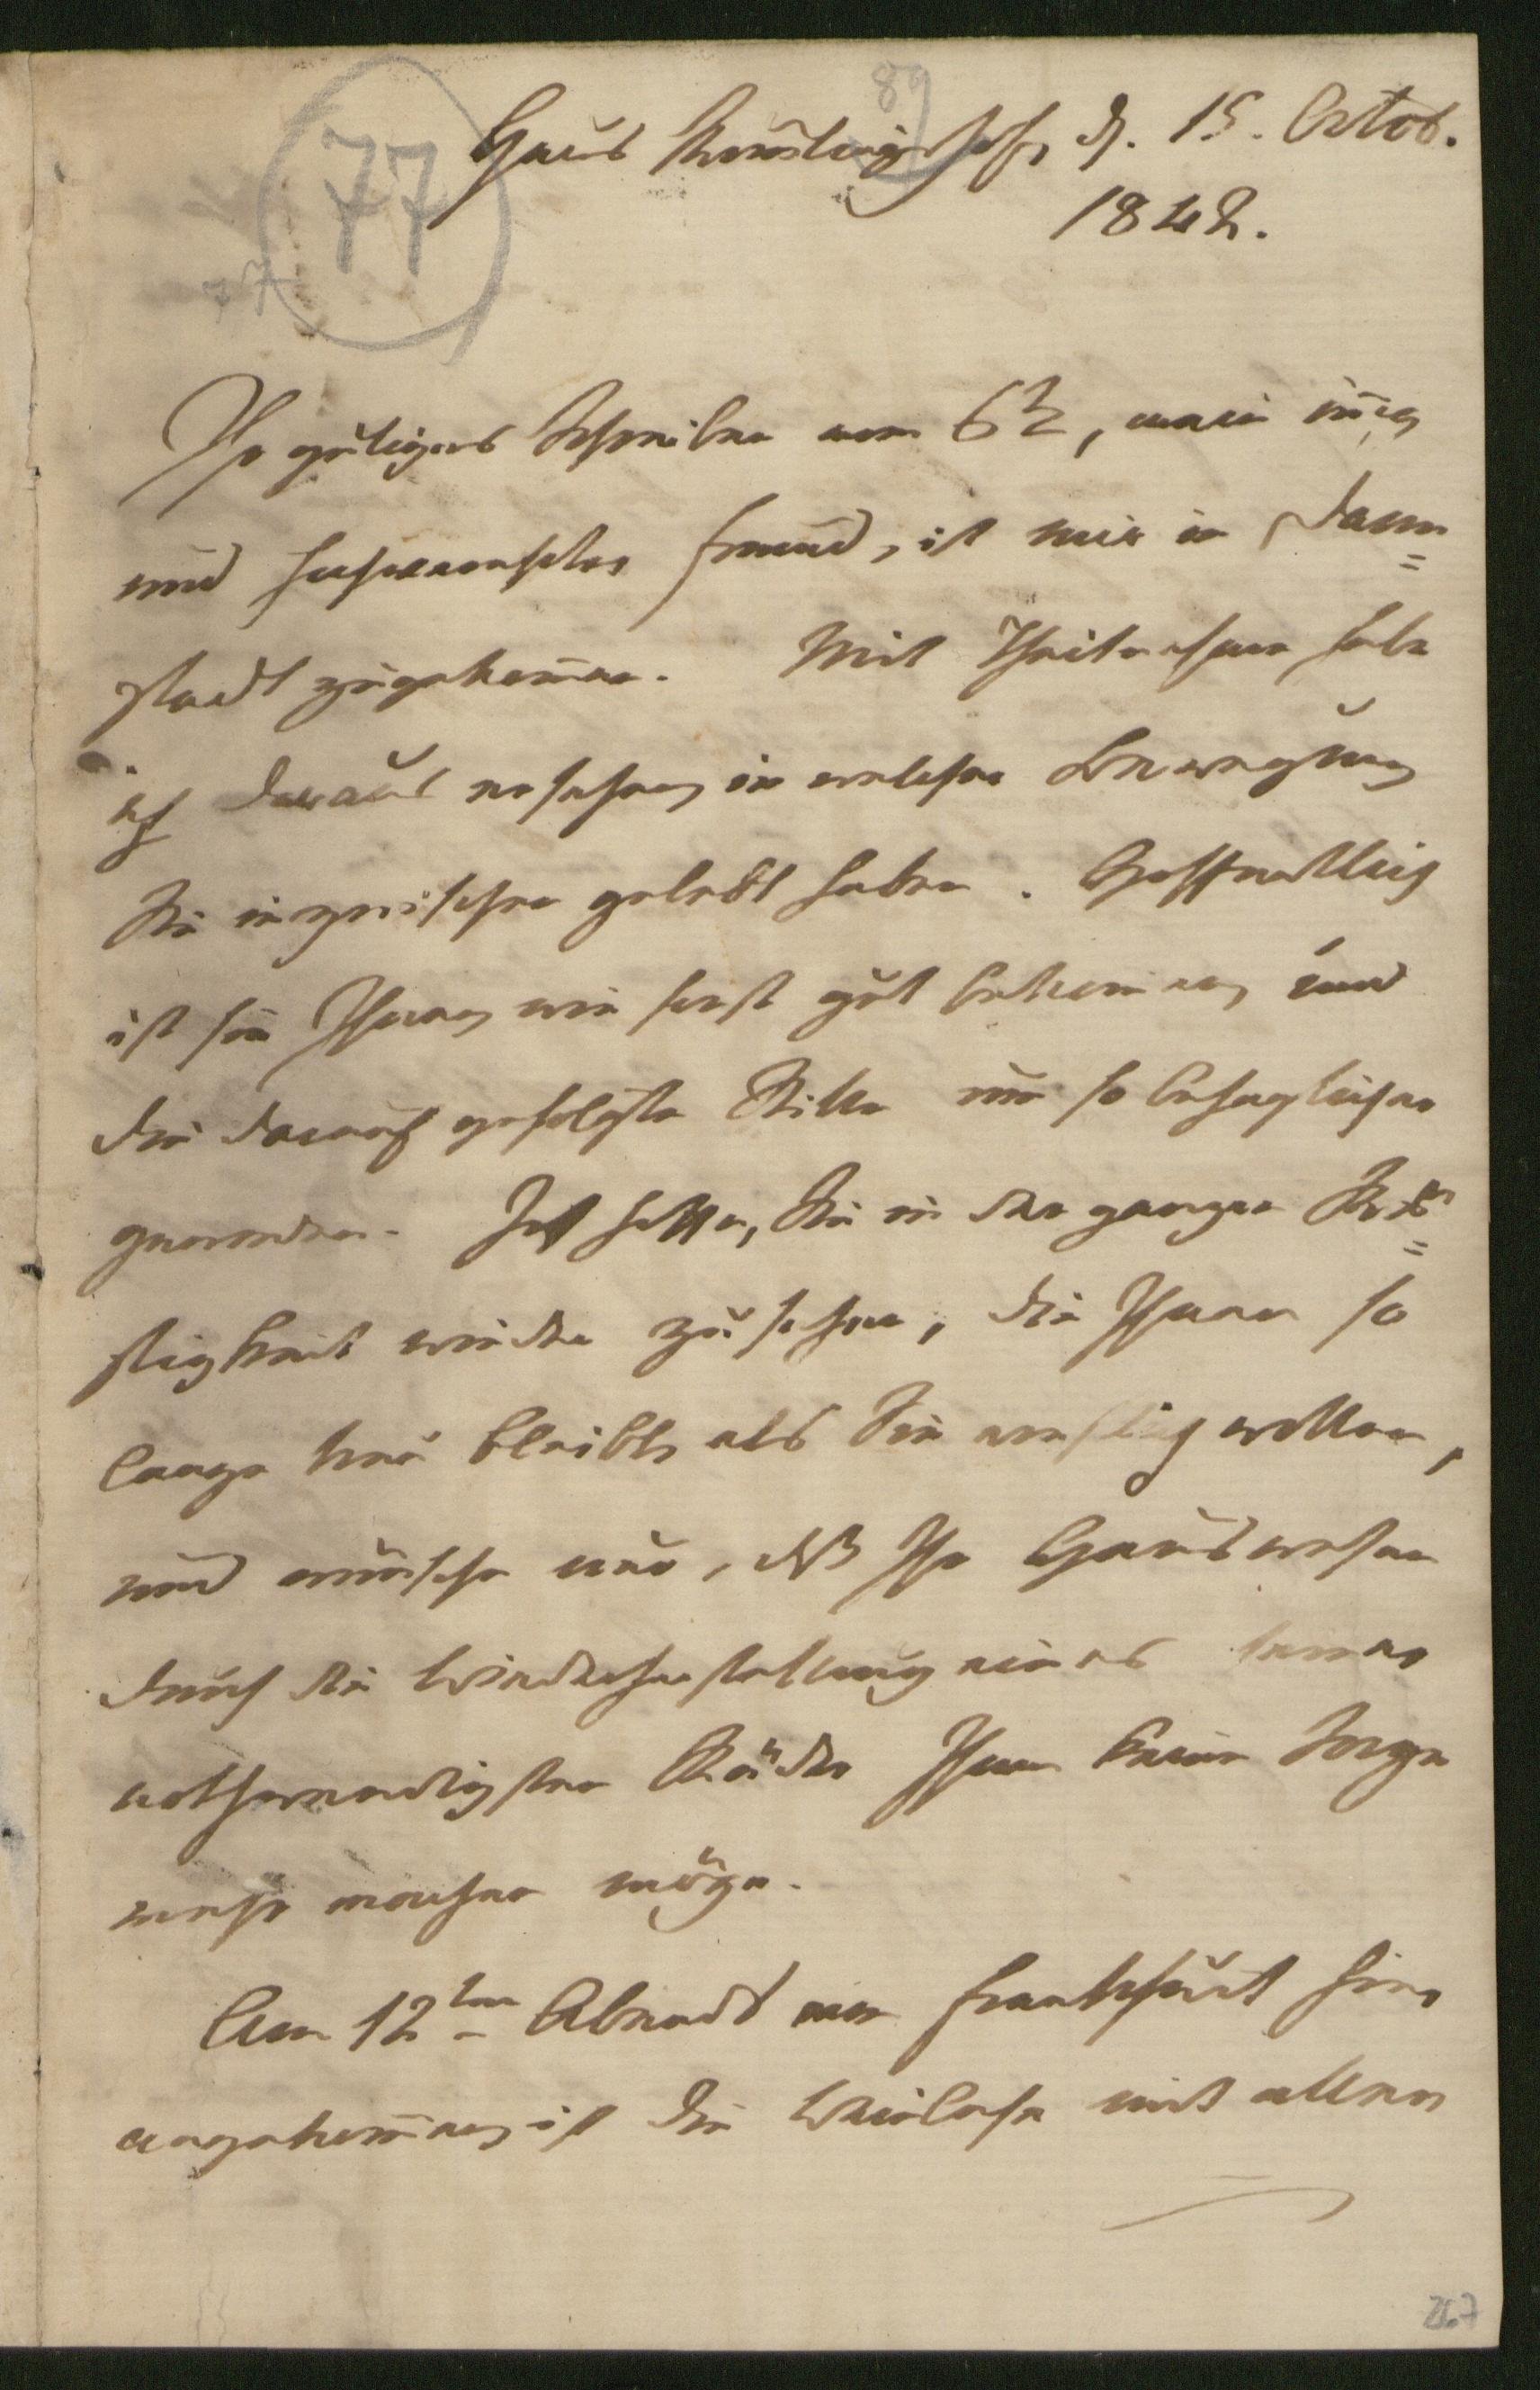 89
77
77
Haus d. 15. Octob.
1842.
Ihr gütiges Schreiben vom 6t, mein innig
und hochverehrter Freund, ist mir in Darm=
stadt zugekommen. Mit Theilnahme habe
ich daraus ersehen, in welcher Bewegung
Sie inzwischen gelebt haben. Hoffentlich
ist sie Ihnen wie sonst gut bekommen, und
die darauf gefolgte Stille um so behaglicher
geworden. Ich hoffe, Sie in der ganzen Rü=
stigkeit wieder zu sehen, die Ihnen so
lange treu bleibt, als Sie ernstlich wollen,
und wünsche nur, daß Ihr Hauswesen
durch die Wiederherstellung eines seiner
nothwendigsten Räder Ihnen keine Sorge
mehr machen möge.
Am 12ten Abends von Frankfurt hier
angekommen, ist die Weinlese mit allen
267